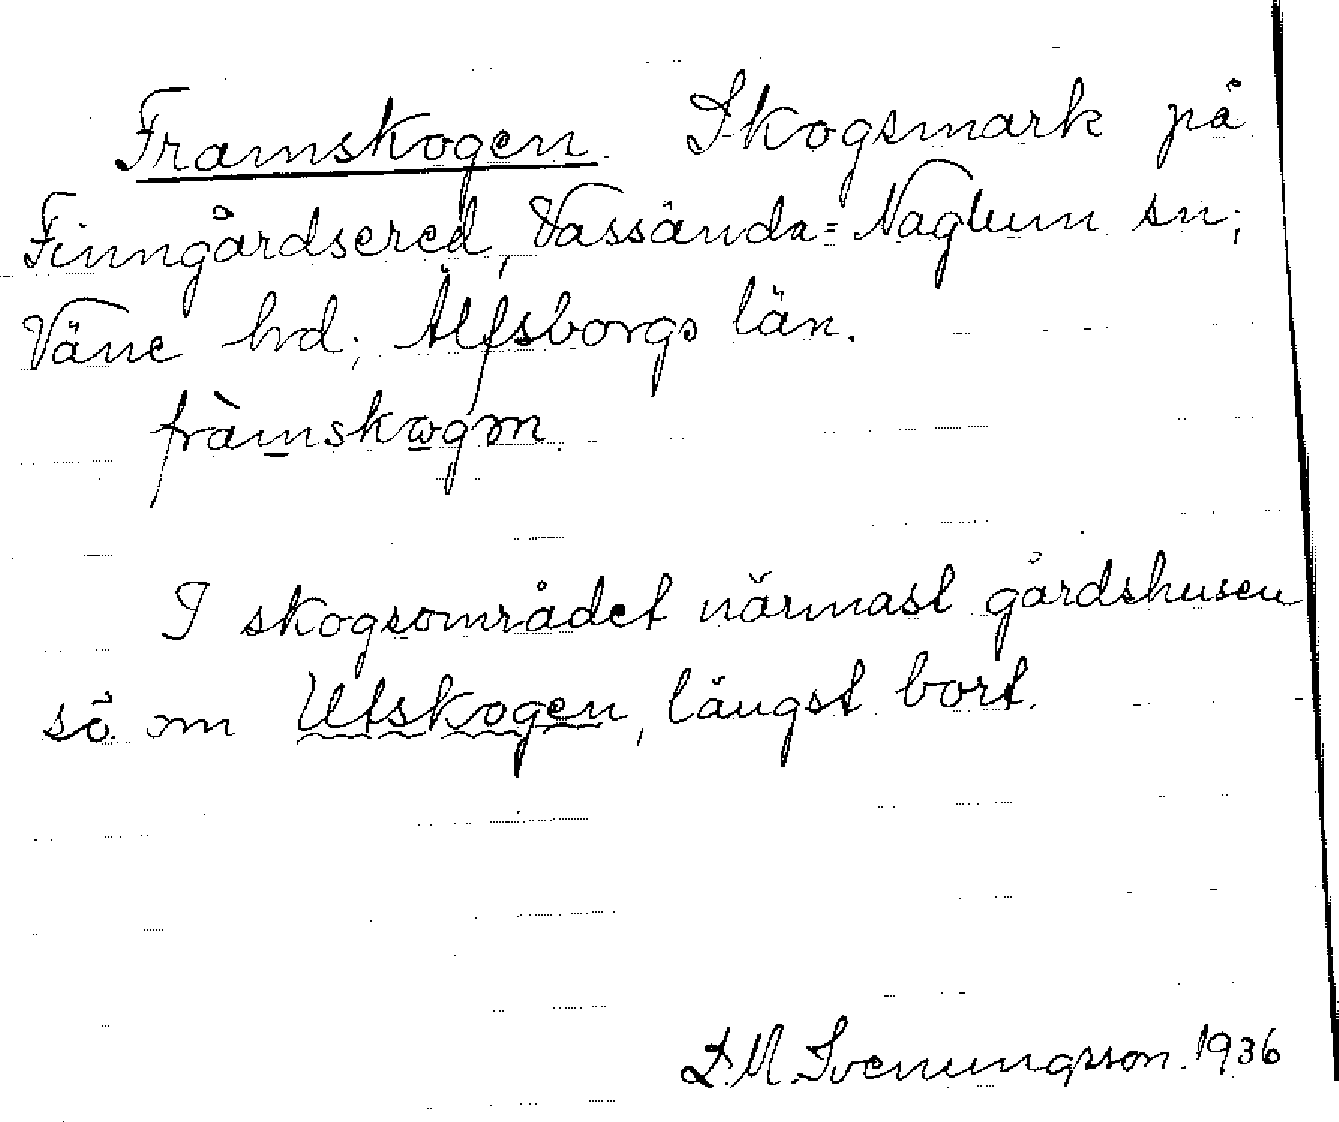 Framskogen. Skogsmark på
Finngårdsered, Vassända=Naglum sn;
Väne hd; Älfsborgs län.
fràmskωgən
I skogsområdet närmast gårdshusen
sö om Utskogen, längst bort.
D.M. Svenungsson. 1936